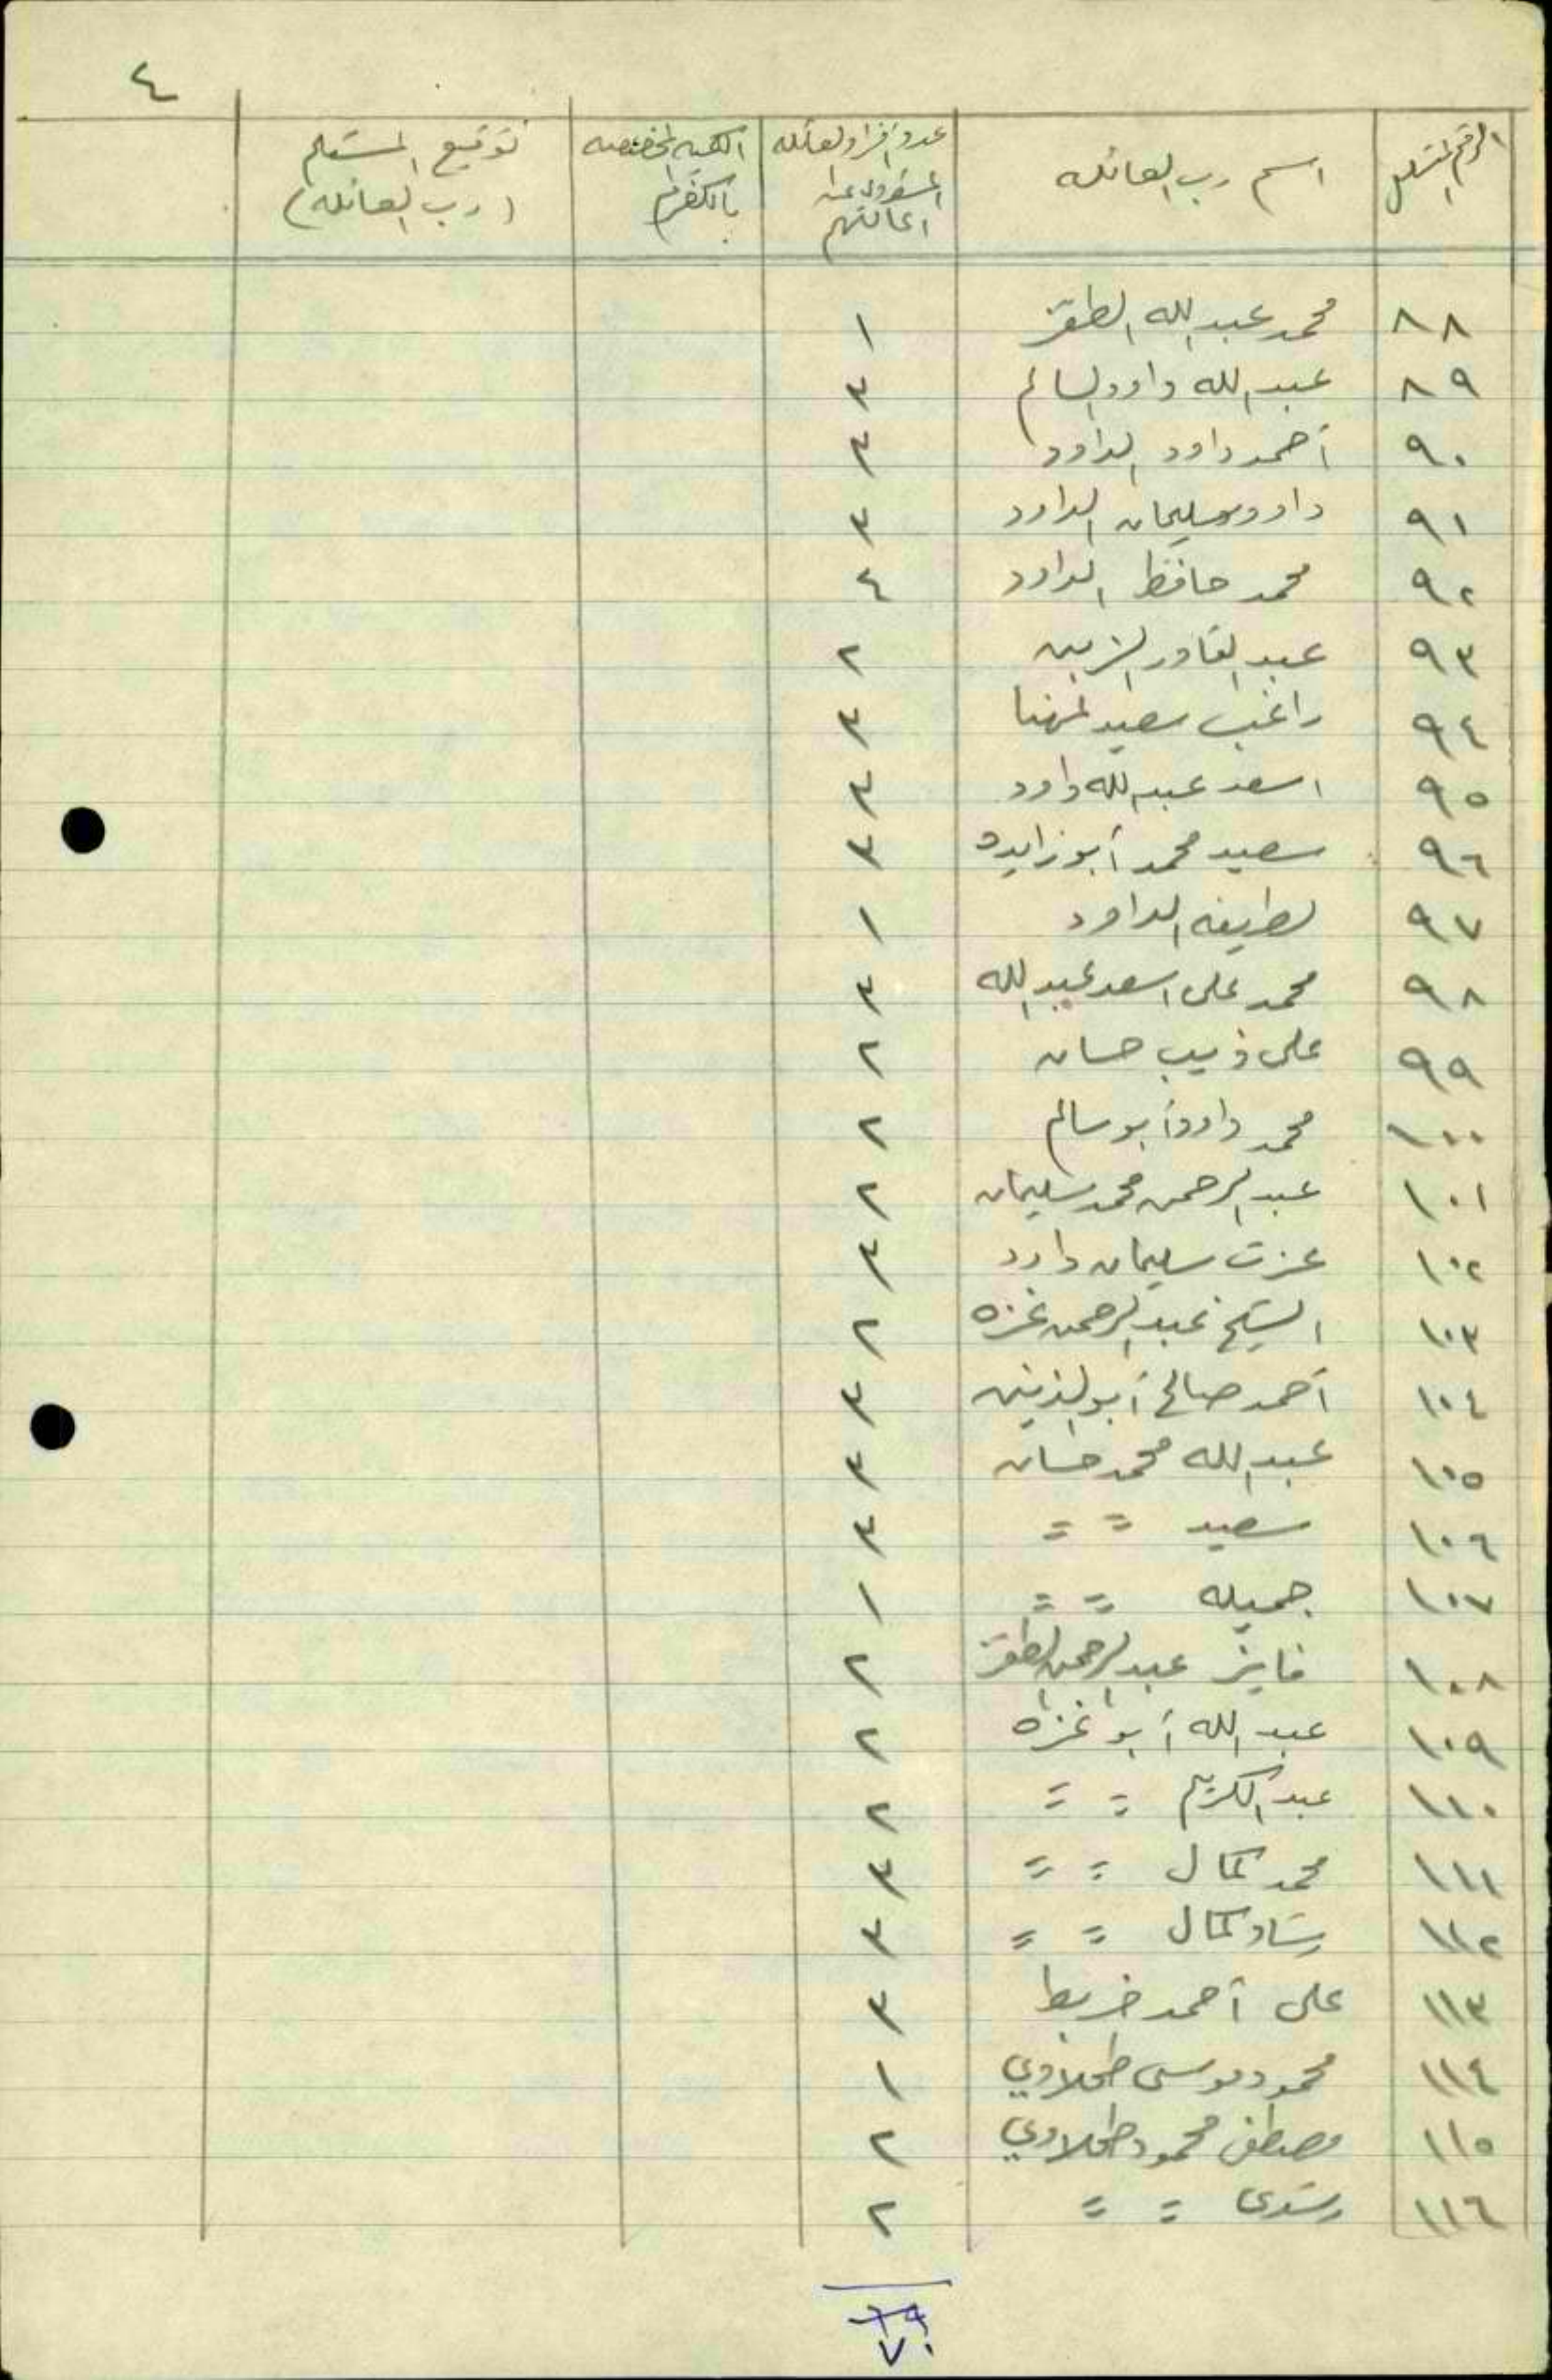 ٤
الرقم المتسلسل | اسم رب العائله | عدد أفراد العائله المسؤول عن اعالتهم | الكميه المخصصه بالكغرام | توقيع المستلم (رب العائله)
٨٨ محمد عبد الله الطقز ١
٨٩ عبد الله داود السالم ٣
٩٠ أحمد داود الداود ٣
٩١ داود سليمان الداود ٣
٩٢ محمد حافظ الداود ٤
٩٣ عبد القادر الزبن ٢
٩٤ راغب سعيد المهنا ٣
٩٥ اسعد عبد الله داود ٣
٩٦ سعيد محمد أبو زايده ٣
٩٧ لطيفه الداود ١
٩٨ محمد علي اسعد عبد الله ٣
٩٩ على ذيب حسان ٢
١٠٠ محمد داود أبو سالم ٢
١٠١ عبد الرحمن محمد سليمان ٢
١٠٢ عزت سليمان داود ٣
١٠٣ الشيخ عبد الرحمن غزه ٢
١٠٤ أحمد صالح أبو ٣
١٠٥ عبد الله محمد حسان ٣
١٠٦ سعيد = = ٣
١٠٧ جميله = = ١
١٠٨ فايز عبد الرحمن الطقز ٢
١٠٩ عبد الله أبو غزه ٢
١١٠ عبد الكريم = = ٢
١١١ محمد كمال = = ٣
١١٢ رشاد كمال = = ٣
١١٣ على أحمد خريط ٣
١١٤ محمود موسى طحلاوي ١
١١٥ مصطفى محمود طحلاوي ٢
١١٦ رشدى = = ٢
٦٩
٧٠